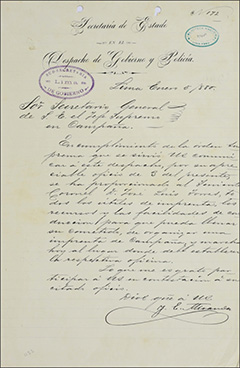 Secretaría de Estado
EN EL
Despacho de Gobierno y Policía.
Lima Enero 5/880.
Sor Secretario General
de S. E. el Jefe Supremo
en Campaña.
En cumplimiento de la orden su
prema que se sirve US comuni
car a este despacho, por su apre
ciable oficio de 3 del presente,
se ha proporcionado al Teniente
Coronel D José to
dos los útiles de imprenta, los
recursos y las facilidades de con
duccion para que pueda llenar
su cometido, de organizar una
imprenta de Campaña, y marche
hoy al lugar donde debe establecer
la respectiva oficina.
Lo que me es grato par
ticipar a US en contestacion a su
citado oficio.
Dios gue á US.